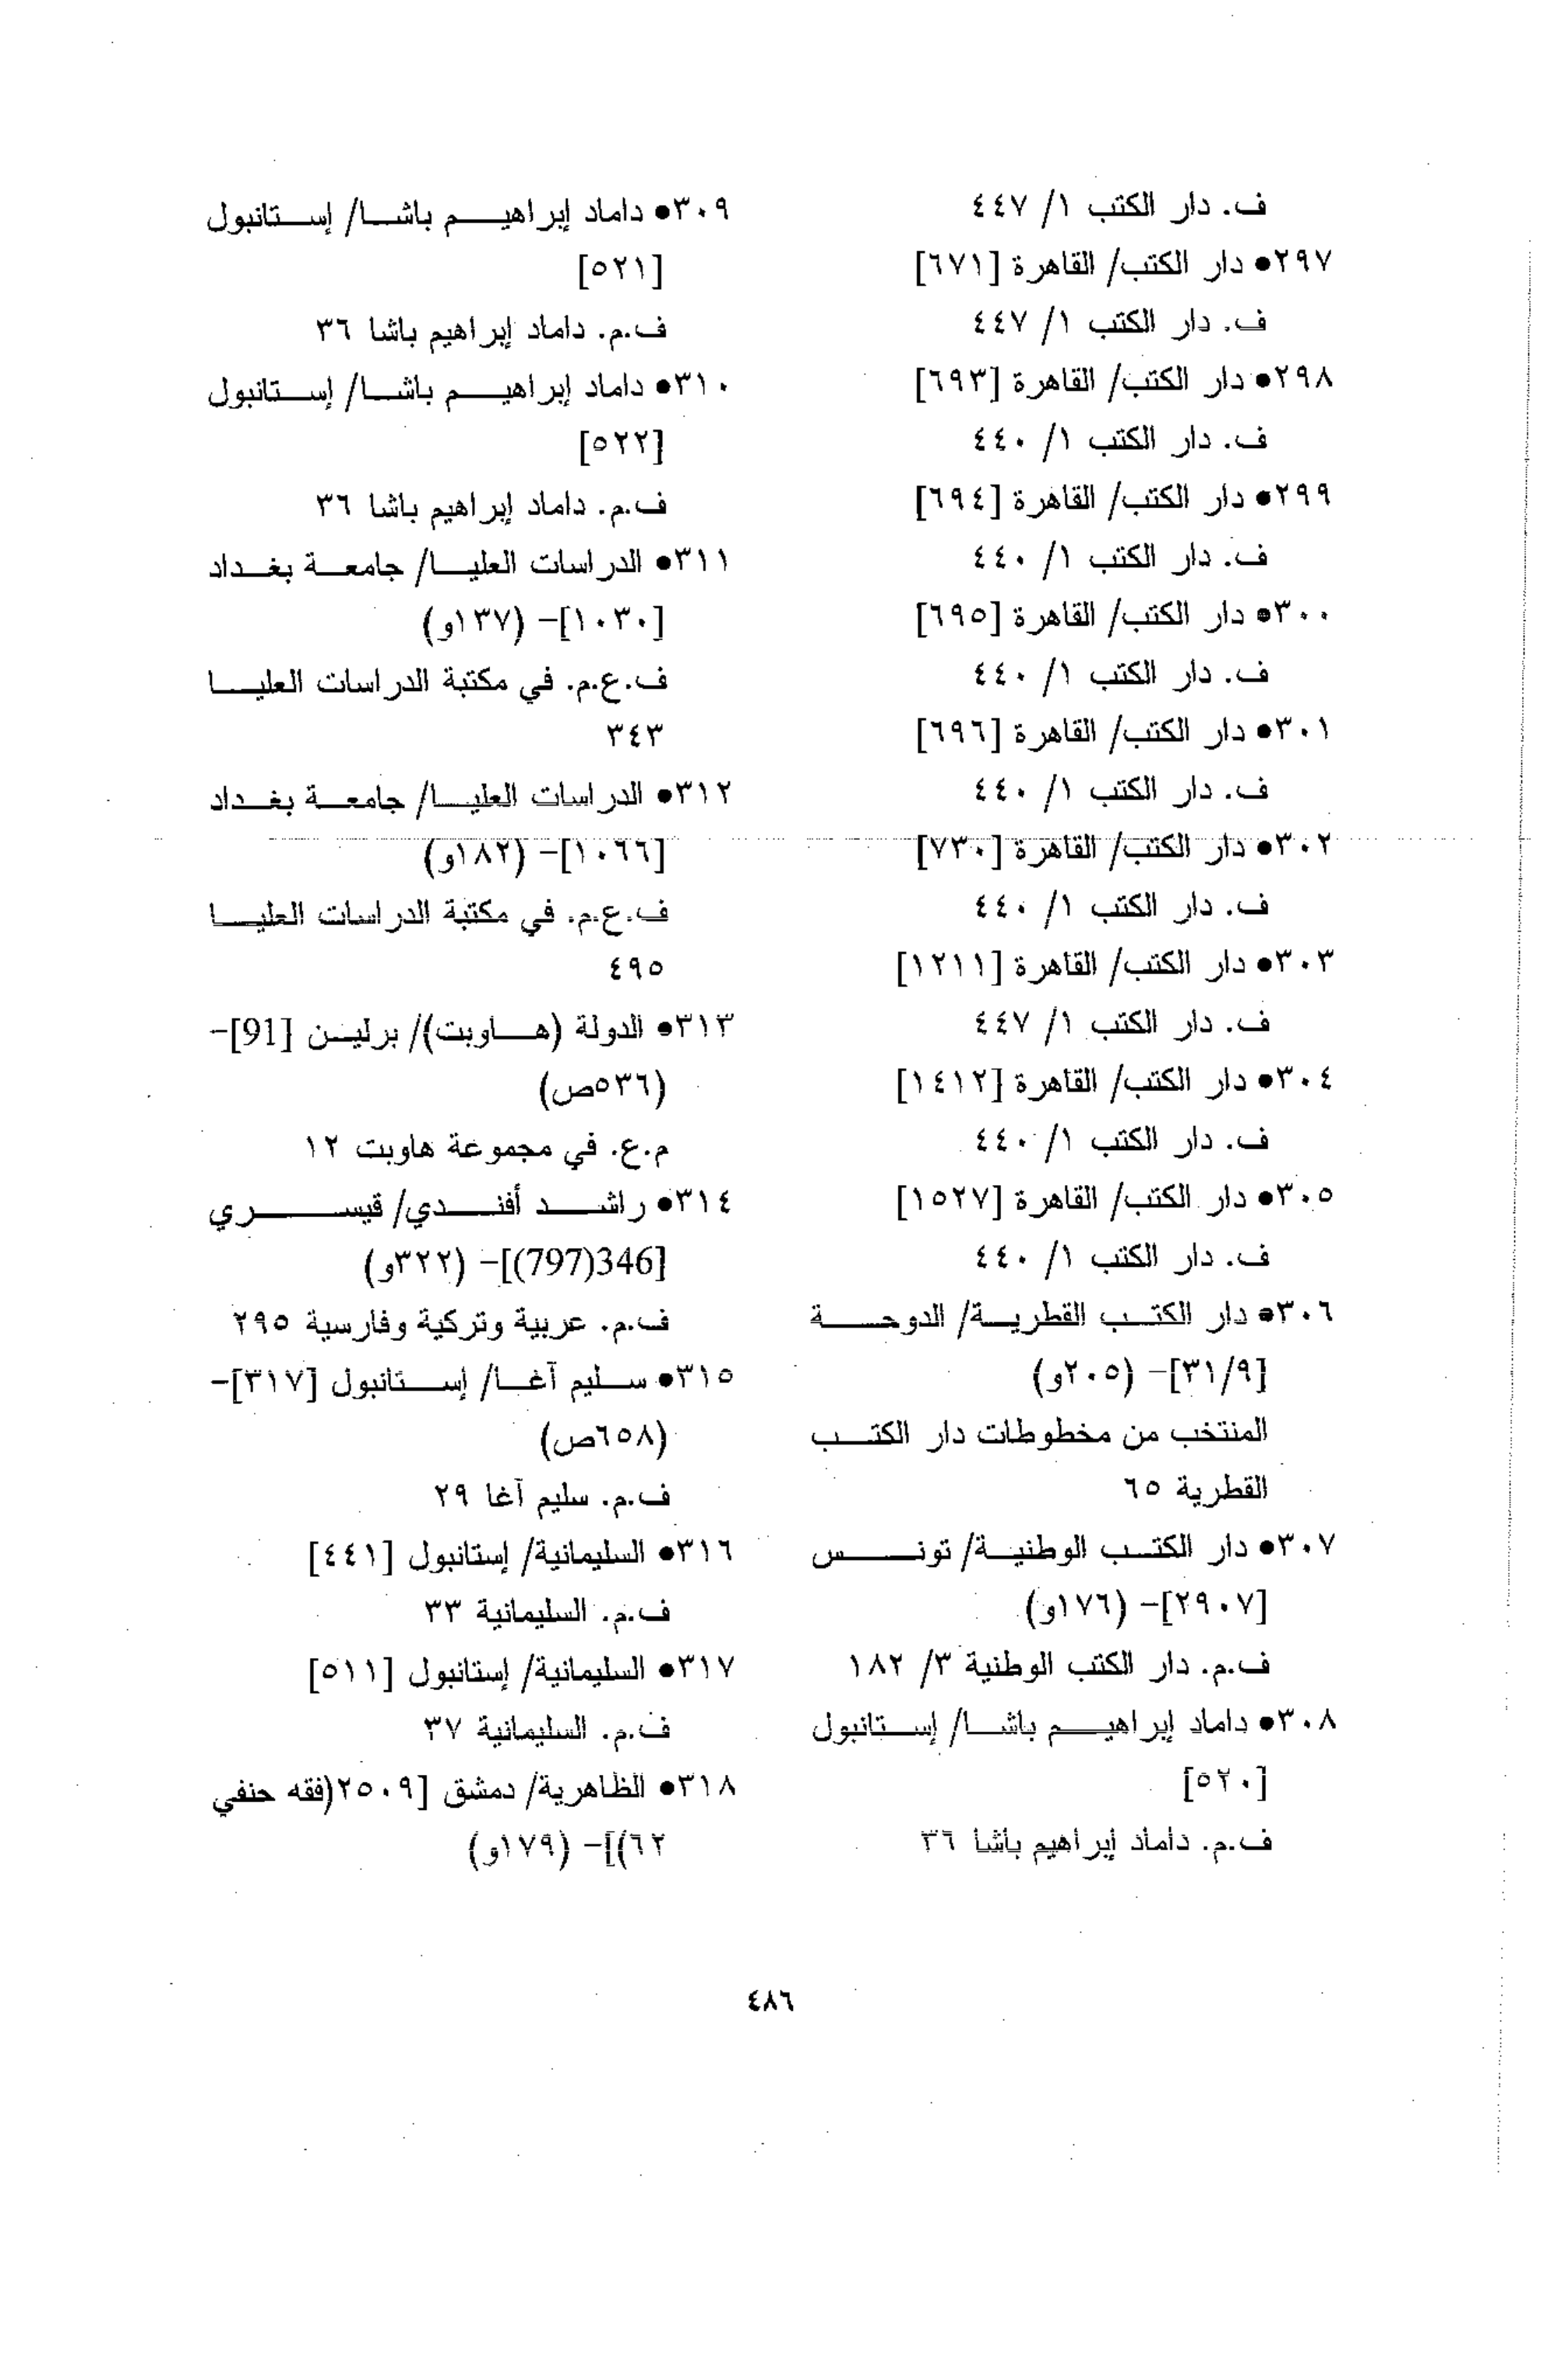 ف. دار الكتب ١/ ٤٤٧
٢٩٧● دار الكتب/ القاهرة [٦٧١]
ف. دار الكتب ١/ ٤٤٧
٢٩٨● دار الكتب/ القاهرة [٦٩٣]
ف. دار الكتب ١/ ٤٤٠
٢٩٩● دار الكتب/ القاهرة [٦٩٤]
ف. دار الكتب ١/ ٤٤٠
٣٠٠● دار الكتب/ القاهرة [٦٩٥]
ف. دار الكتب ١/ ٤٤٠
٣٠١● دار الكتب/ القاهرة [٦٩٦]
ف. دار الكتب ١/ ٤٤٠
٣٠٢● دار الكتب/ القاهرة [٧٣٠]
ف. دار الكتب ١/ ٤٤٠
٣٠٣● دار الكتب/ القاهرة [١٢١١]
ف. دار الكتب ١/ ٤٤٧
٣٠٤● دار الكتب/ القاهرة [١٤١٢]
ف. دار الكتب ١/ ٤٤٠
٣٠٥● دار الكتب/ القاهرة [١٥٢٧]
ف. دار الكتب ١/ ٤٤٠
٣٠٦● دار الكتب القطرية/ الدوحة
[٣١/٩]- (٢٠٥و)
المنتخب من مخطوطات دار الكتب
القطرية ٦٥
٣٠٧● دار الكتب الوطنية/ تونس
[٢٩٠٧]- (١٧٦و)
ف.م. دار الكتب الوطنية ٣/ ١٨٢
٣٠٨● داماد إبراهيم باشا/ إستانبول
[٥٢٠]
ف.م. داماد إبراهيم باشا ٣٦
٣٠٩● داماد إبراهيم باشا/ إستانبول
[٥٢١]
ف.م. داماد إبراهيم باشا ٣٦
٣١٠● داماد إبراهيم باشا/ إستانبول
[٥٢٢]
ف.م. داماد إبراهيم باشا ٣٦
٣١١● الدراسات العليا/ جامعة بغداد
[١٠٣٠]- (١٣٧و)
ف.ع.م. في مكتبة الدراسات العليا
٣٤٣
٣١٢● الدراسات العليا/ جامعة بغداد
[١٠٦٦]- (١٨٢و)
ف.ع.م. في مكتبة الدراسات العليا
٤٩٥
٣١٣● الدولة (هاوبت)/ برلين [91]-
(٥٣٦ص)
م.ع. في مجموعة هاوبت ١٢
٣١٤● راشد أفندي/ قيسري
[346(797)]- (٣٢٢و)
ف.م. عربية وتركية وفارسية ٢٩٥
٣١٥● سليم آغا/ إستانبول [٣١٧]-
(٦٥٨ص)
ف.م. سليم آغا ٢٩
٣١٦● السليمانية/ إستانبول [٤٤١]
ف.م. السليمانية ٣٣
٣١٧● السليمانية/ إستانبول [٥١١]
ف.م. السليمانية ٣٧
٣١٨● الظاهرية/ دمشق [٢٥٠٩(فقه حنفي
٦٢)]- (١٧٩و)
٤٨٦